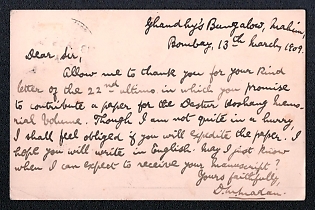 Ghandhy's Bungalow, Mahim,
Bombay, 13th March, 1909.
Dear Sir,
Allow me to thank you for your kind
letter of the 22nd ultimo in which you promise
to contribute a paper for the Dastur Hoshang Memo-
rial Volume. Though I am not quite in a hurry,
I shall feel obliged if you will expedite the paper. I
hope you will write in English. May I just know
when I can expect to receive your manuscript?
Yours faithfully,